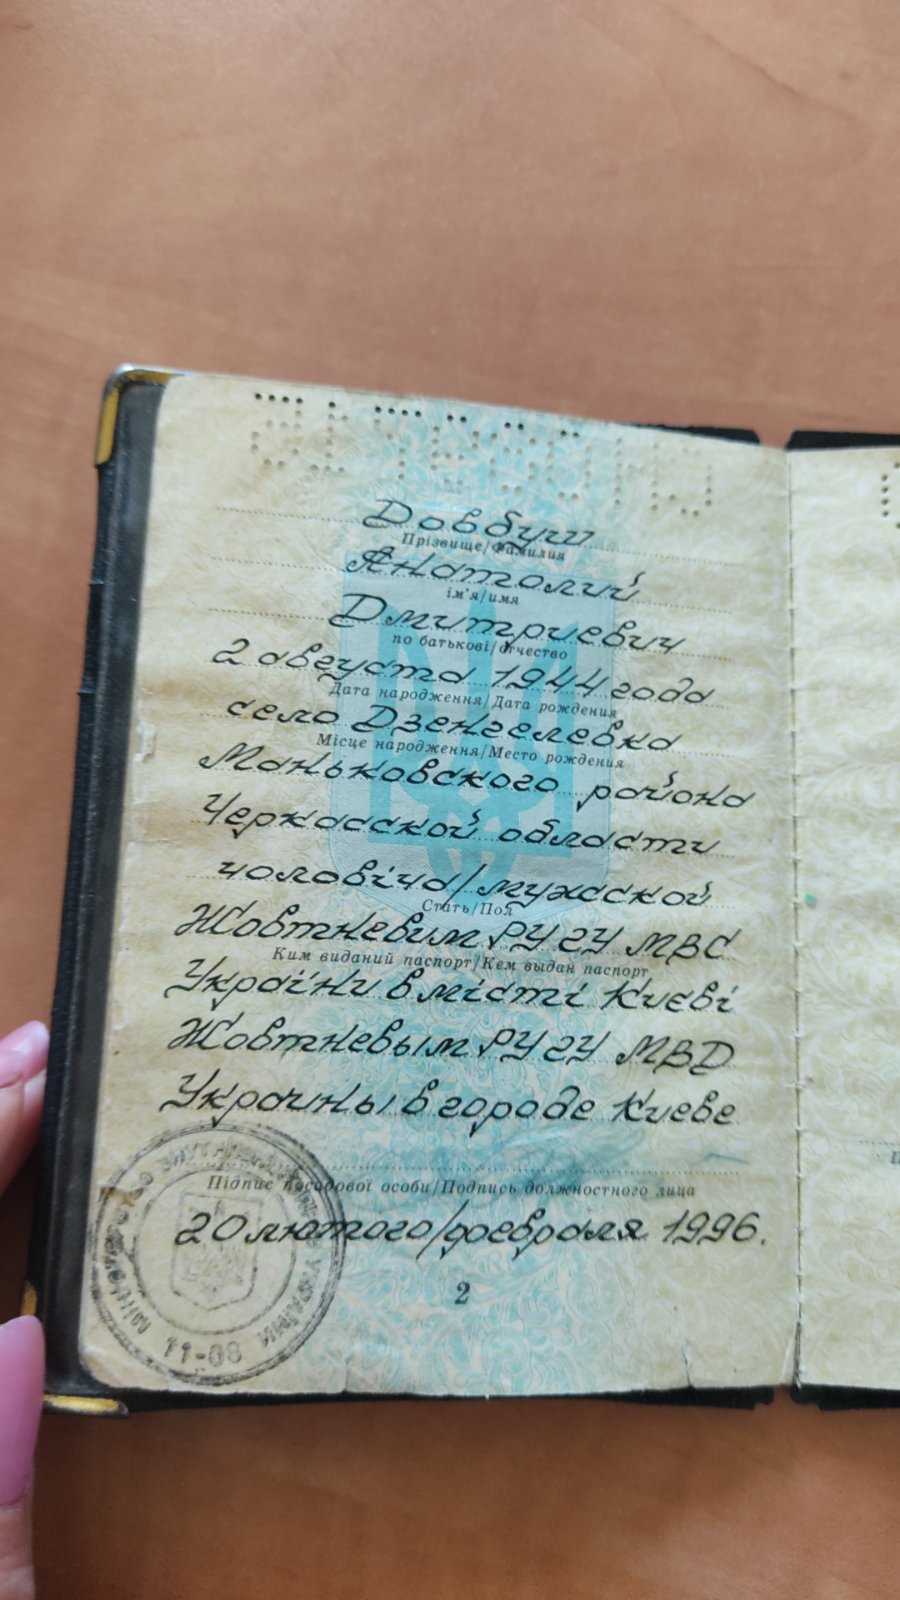 Довбуш
Прізвище/Фамилия
Анатолий
ім'я/имя
Дмитриевич
по батькові/отчество
2 августа 1944 года
Дата народження/Дата рождения
село Дзенгелевка
Місце народження/Место рождения
Маньковского района
Черкасской области
чоловіча/мужской
Стать/Пол
Жовтневим РУ ГУ МВС
Ким виданий паспорт/Кем выдан паспорт
України в місті Києві
Жовтневым РУ ГУ МВД
Украины в городе Киеве
Підпис посадової особи/Подпись должностного лица
20 лютого/февраля 1996.
2
11-08